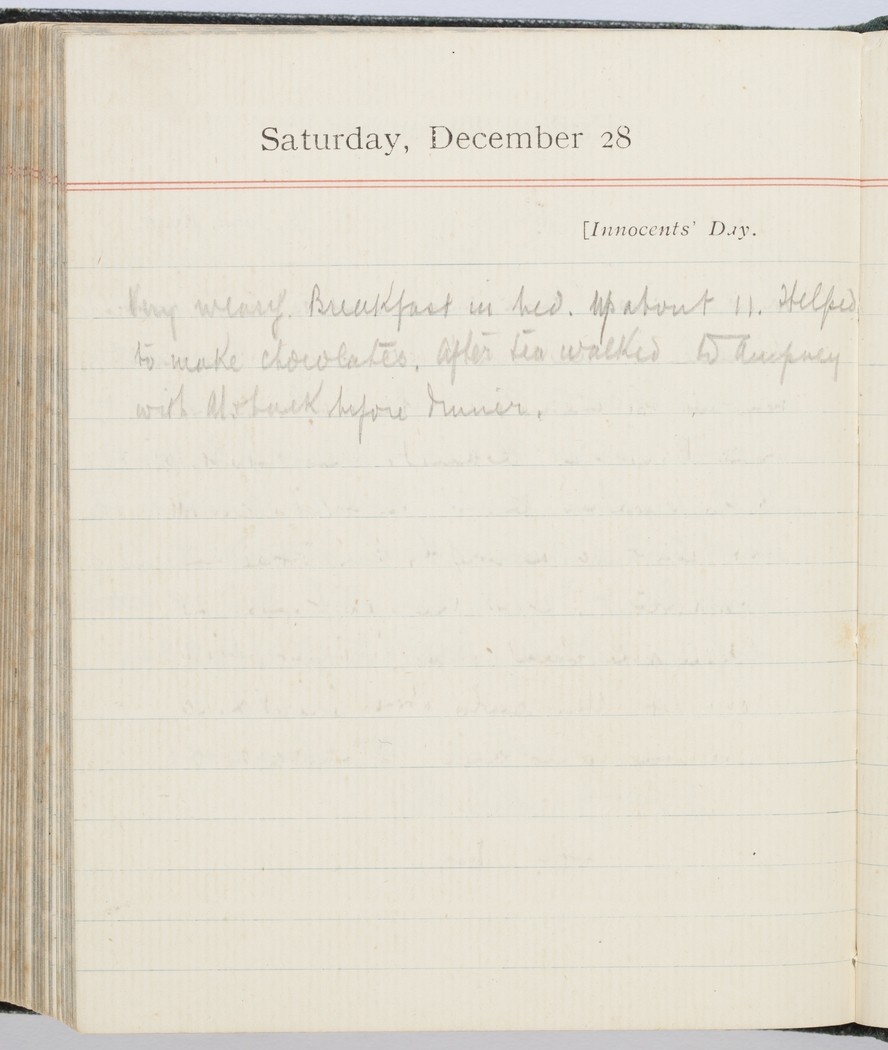 Saturday, December 28
[Innocents' Day.
Very weary. Breakfast in bed. Up about 11. Helped
to make chocolates. After tea walked to Ampney
with back before dinner.